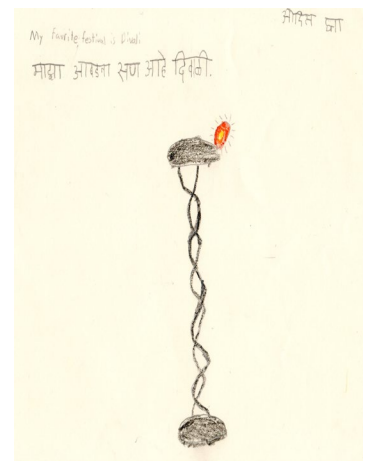 My Favorite festival is Diwali
माझा आवडता सण आहे दिवाळी.